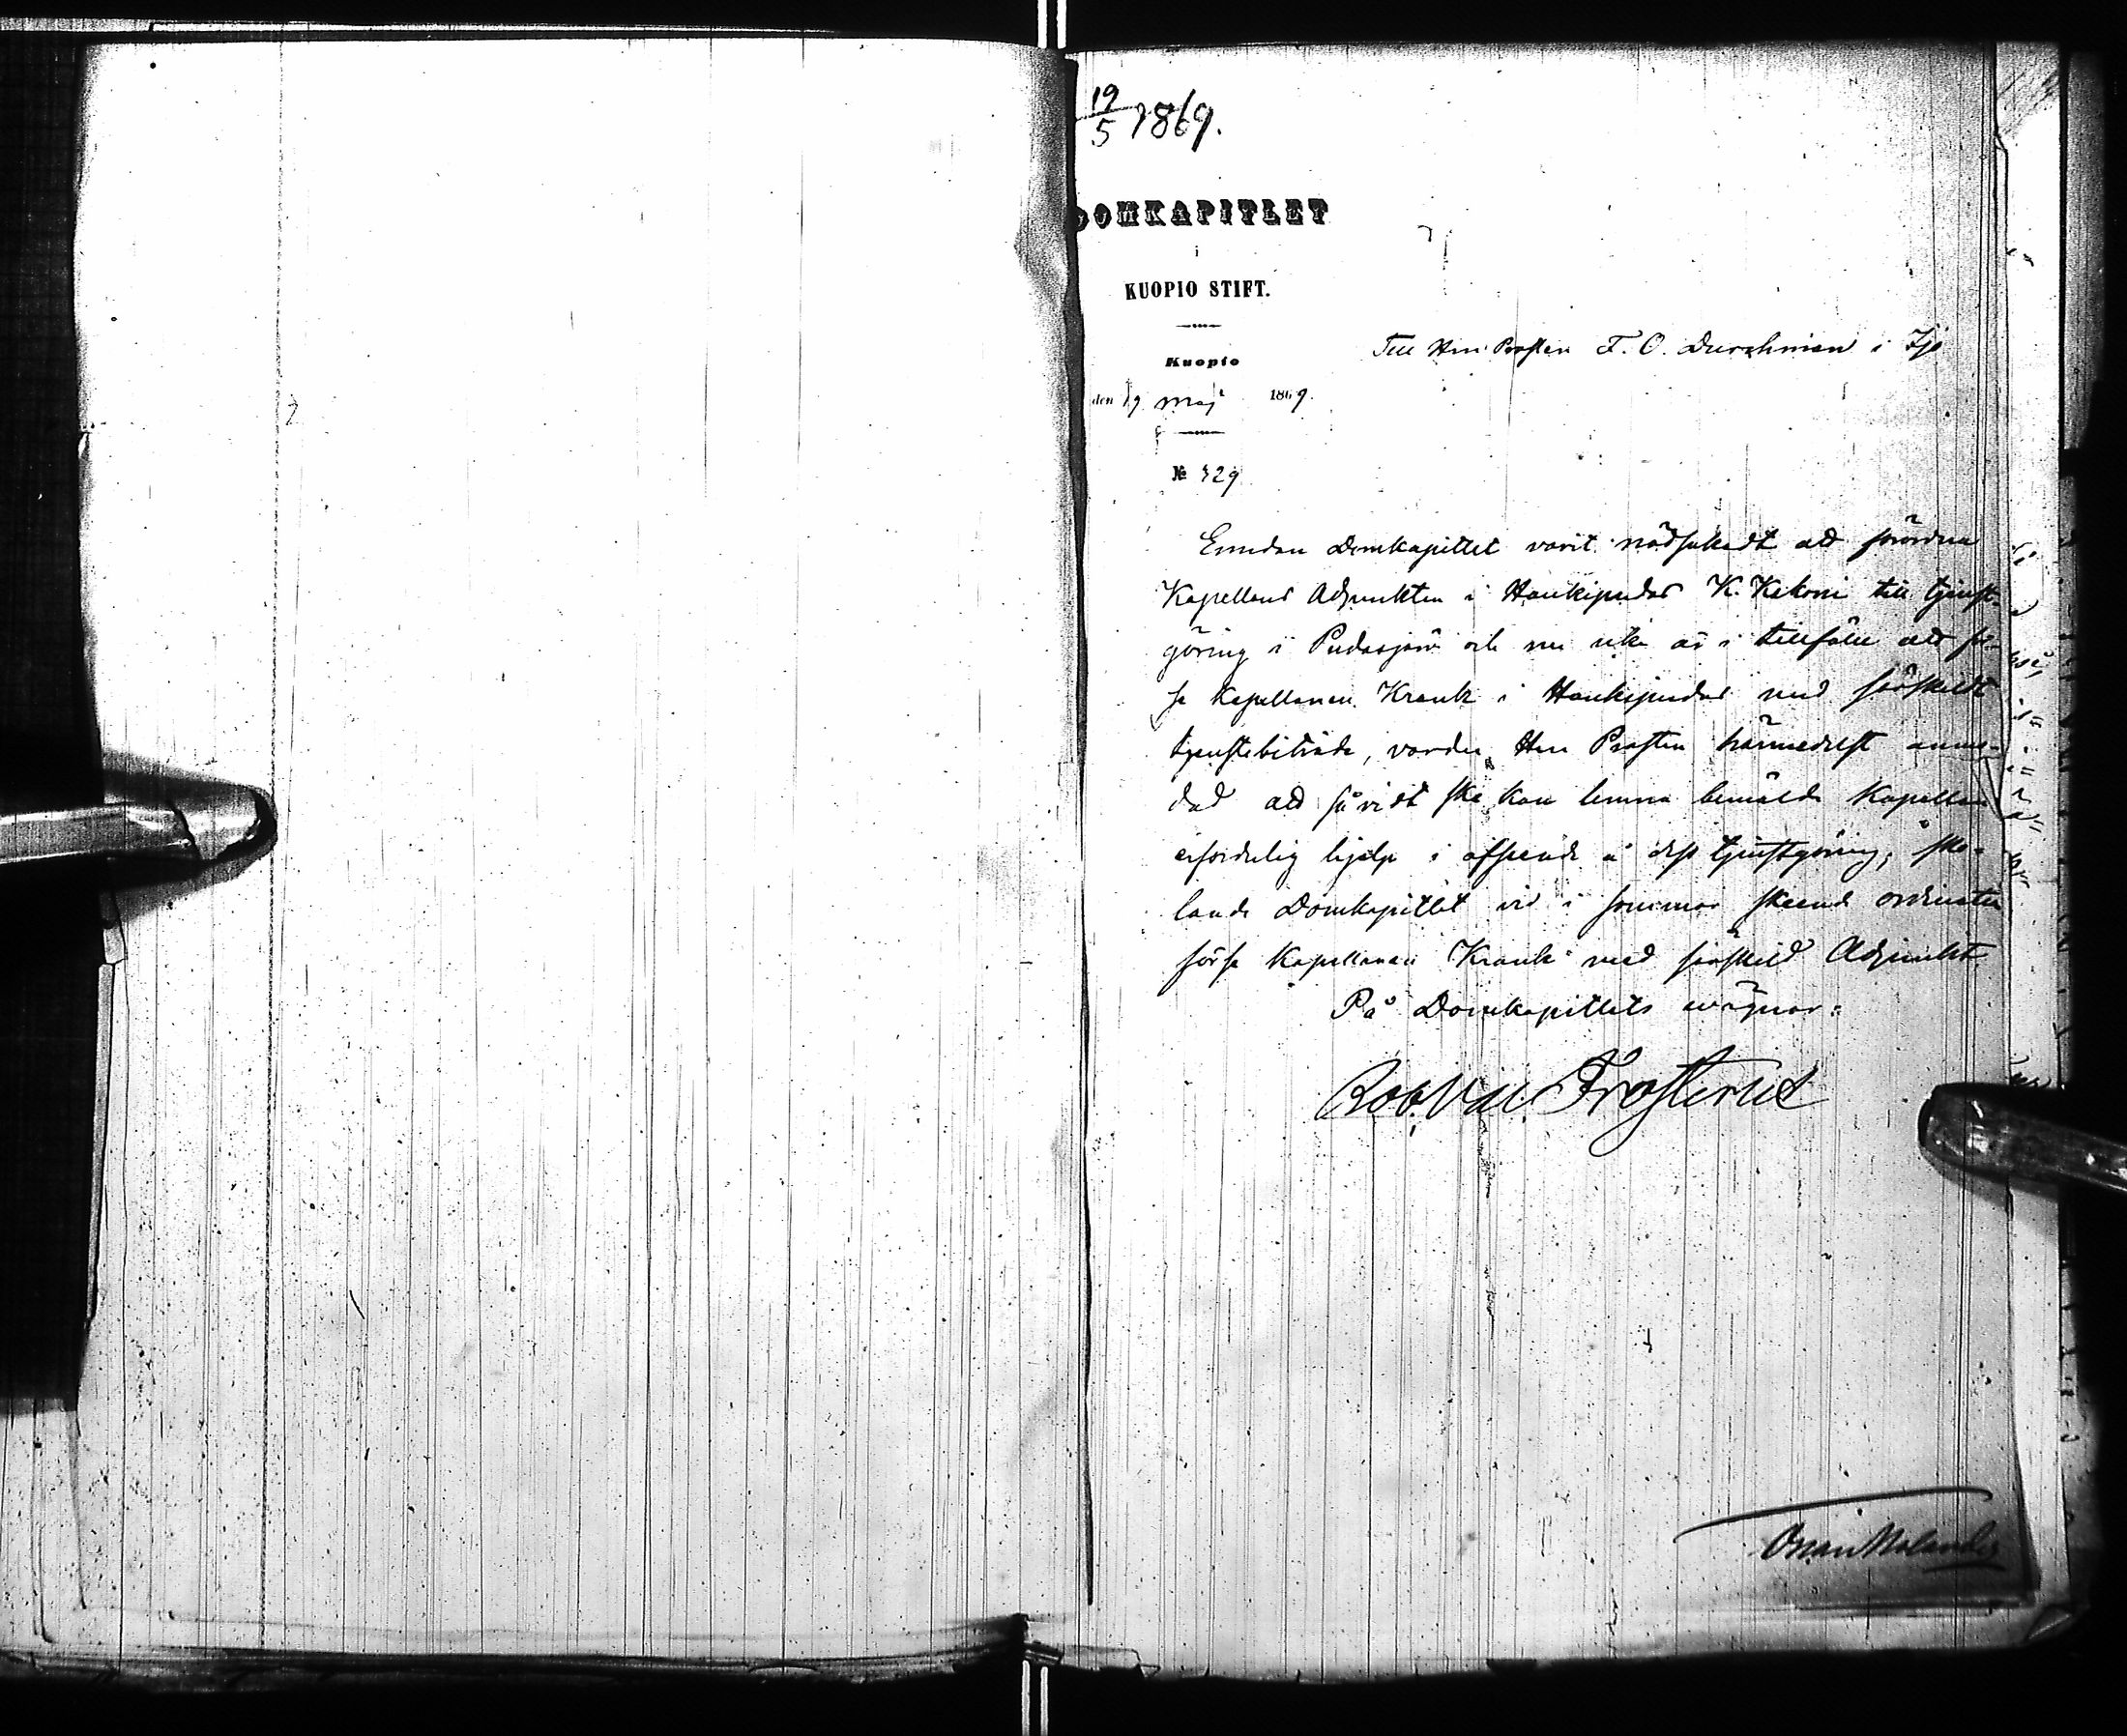 19/5 1869.
DOMKAPITLET
i
KUOPIO STIFT.
Kuopio
den 19 maj 1869.
№ 329
Till Herr Prosten F. O. Durchman i Ijo
Emedan Domkapitlet varit nödsakadt att förordna
Kapellans Adjunkten i Haukipudas K. Kekoni till tjenst-
göring i Pudasjärvi och nu icke är i tillfälle att för-
se Kapellanen Krank i Haukipudas med särskildt
tjenstebiträde, varder Herr Prosten härmedelst anmo-
dad att såvidt ske kan lemna bemälde Kapellan
erforderlig hjelp i afseende å dess tjenstgöring; sko-
lande Domkapitlet vid i sommar skeende ordination
förse Kapellanen Krank med särskild Adjunkt.
På Domkapitlets wägnar:
Rob. Val. Frosterus
Oskar Malander